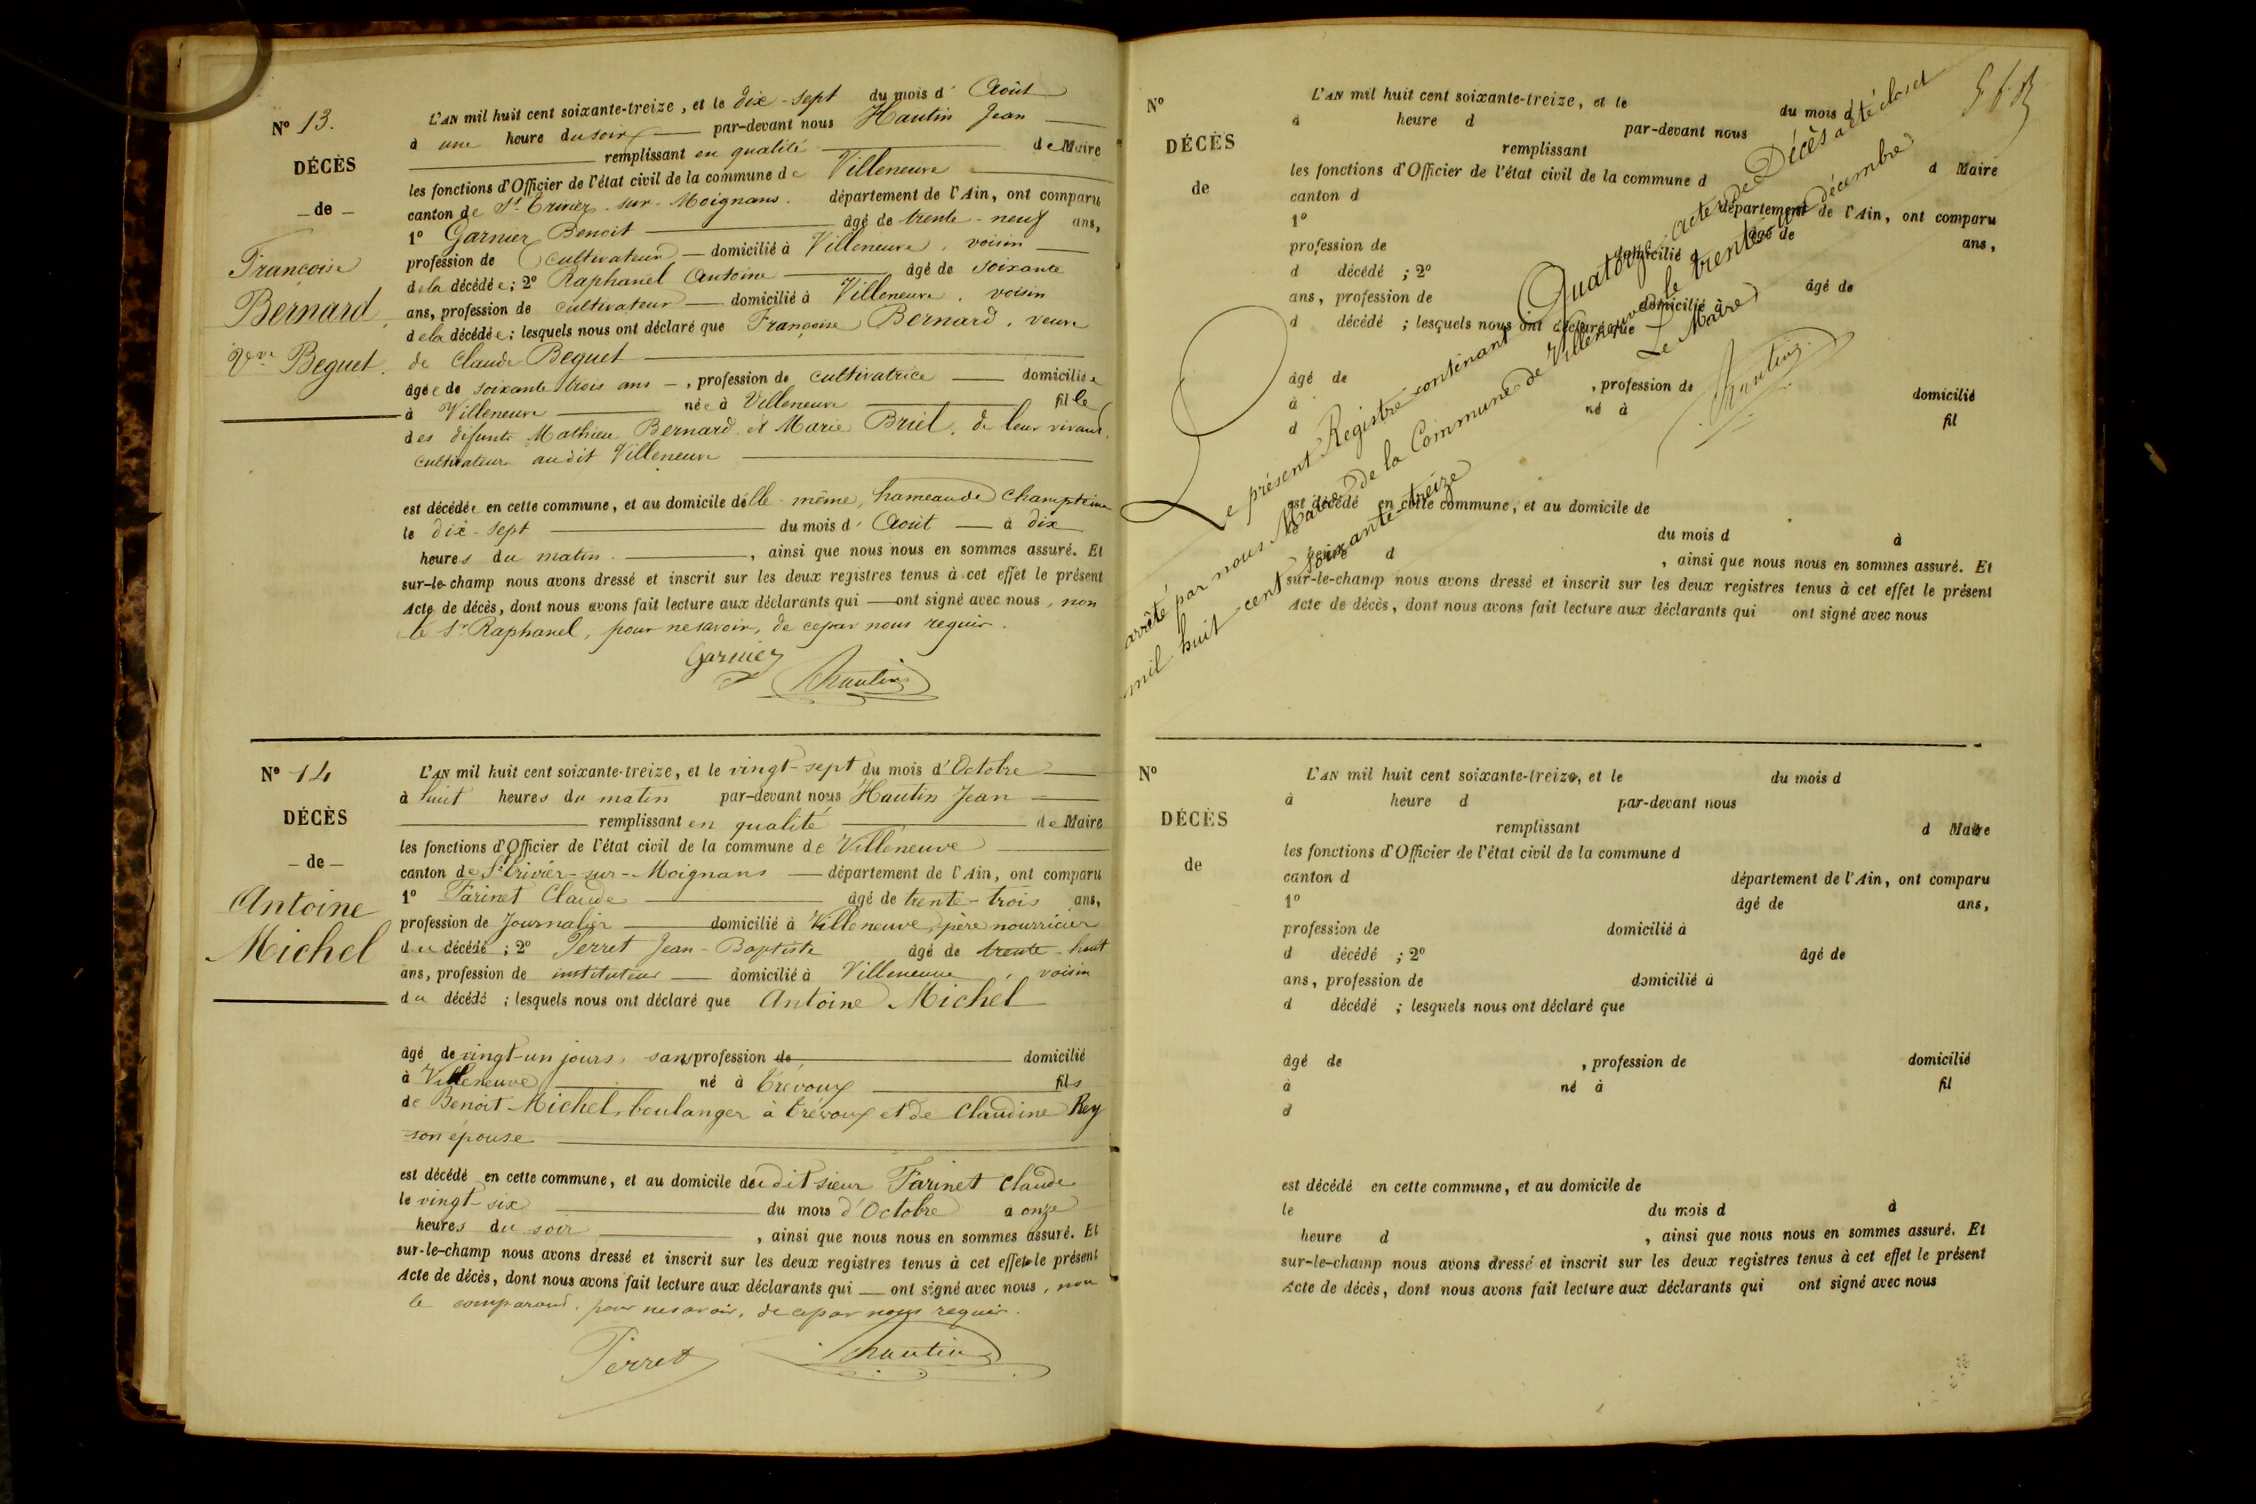 Nº 13.
DÉCÈS
de
Françoise
Bernard,
Vve Beguet.
L'AN mil huit cent soixante-treize, et le dix-sept du mois d' Août
à une heure du soir par-devant nous Hautin Jean
remplissant en qualité de Maire
les fonctions d'Officier de l'état civil de la commune de Villeneuve
canton de St Trivier-sur-Moignans. département de l'Ain, ont comparu
1º Garnier Benoit âgé de trente-neuf ans,
profession de cultivateur domicilié à Villeneuve, voisin
de la décédée ; 2º Raphanel Antoine âgé de soixante
ans, profession de cultivateur domicilié à Villeneuve, voisin
de la décédée ; lesquels nous ont déclaré que Françoise Bernard, veuve
de Claude Beguet
âgée de soixante trois ans, profession de cultivatrice domiciliée
à Villeneuve née à Villeneuve fille
des défunts Mathieu Bernard et Marie Briel, de leur vivant,
cultivateurs audit Villeneuve
est décédée en cette commune, et au domicile d'elle-même, hameau de
le dix-sept du mois d' Août à dix
heures du matin, ainsi que nous nous en sommes assuré. Et
sur-le-champ nous avons dressé et inscrit sur les deux registres tenus à cet effet le présent
Acte de décès, dont nous avons fait lecture aux déclarants qui ont signé avec nous, non
le Sr Raphanel, pour ne savoir, de ce par nous requis.
Garnier
Hautin
Nº 14
DÉCÈS
de
Antoine
Michel
L'AN mil huit cent soixante-treize, et le vingt-sept du mois d'Octobre
à huit heures du matin par-devant nous Hautin Jean
remplissant en qualité de Maire
les fonctions d'Officier de l'état civil de la commune de Villeneuve
canton de St Trivier-sur-Moignans département de l'Ain, ont comparu
1º Farinet Claude âgé de trente-trois ans,
profession de Journalier domicilié à Villeneuve, père nourricier
du décédé ; 2º Perret Jean-Baptiste âgé de trente-huit
ans, profession de instituteur domicilié à Villeneuve, voisin
du décédé ; lesquels nous ont déclaré que Antoine Michel
âgé de vingt-un jours, sans profession de domicilié
à Villeneuve né à Trévoux fils
de Benoit Michel, boulanger à Trévoux et de Claudine Rey
son épouse
est décédé en cette commune, et au domicile dudit sieur Farinet Claude
le vingt-six du mois d'Octobre à onze
heures du soir, ainsi que nous nous en sommes assuré. Et
sur-le-champ nous avons dressé et inscrit sur les deux registres tenus à cet effet le présent
Acte de décès, dont nous avons fait lecture aux déclarants qui ont signé avec nous, non
le comparant, pour ne savoir, de ce par nous requis.
Perret
Hautin
Nº
DÉCÈS
de
L'AN mil huit cent soixante-treize, et le du mois d
à heure d par-devant nous
remplissant d Maire
les fonctions d'Officier de l'état civil de la commune d
canton d département de l'Ain, ont comparu
1º âgé de ans,
profession de domicilié à
d décédé ; 2º âgé de
ans, profession de domicilié à
d décédé ; lesquels nous ont déclaré que
âgé de , profession de domicilié
à né à fil
d
est décédé en cette commune, et au domicile de
le du mois d à
heure d , ainsi que nous nous en sommes assuré. Et
sur-le-champ nous avons dressé et inscrit sur les deux registres tenus à cet effet le présent
Acte de décès, dont nous avons fait lecture aux déclarants qui ont signé avec nous
Le présent Registre contenant Quatorze actes de Décès a été clos et
arrêté par nous Maire de la Commune de Villeneuve le trente-un décembre
mil huit cent soixante-treize
Le Maire
Hautin
Nº
DÉCÈS
de
L'AN mil huit cent soixante-treize, et le du mois d
à heure d par-devant nous
remplissant d Maire
les fonctions d'Officier de l'état civil de la commune d
canton d département de l'Ain, ont comparu
1º âgé de ans,
profession de domicilié à
d décédé ; 2º âgé de
ans, profession de domicilié à
d décédé ; lesquels nous ont déclaré que
âgé de , profession de domicilié
à né à fil
d
est décédé en cette commune, et au domicile de
le du mois d à
heure d , ainsi que nous nous en sommes assuré. Et
sur-le-champ nous avons dressé et inscrit sur les deux registres tenus à cet effet le présent
Acte de décès, dont nous avons fait lecture aux déclarants qui ont signé avec nous